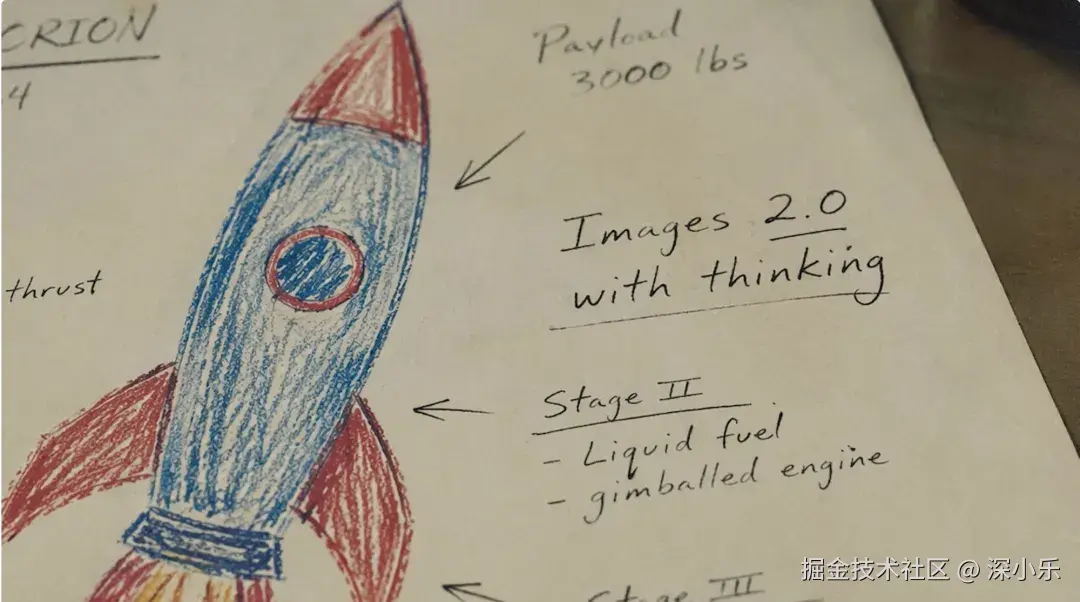 ORION
4
Payload
3000 lbs
Images 2.0
with thinking
thrust
Stage II
- Liquid fuel
- gimballed engine
Stage III
掘金技术社区 @ 深小乐